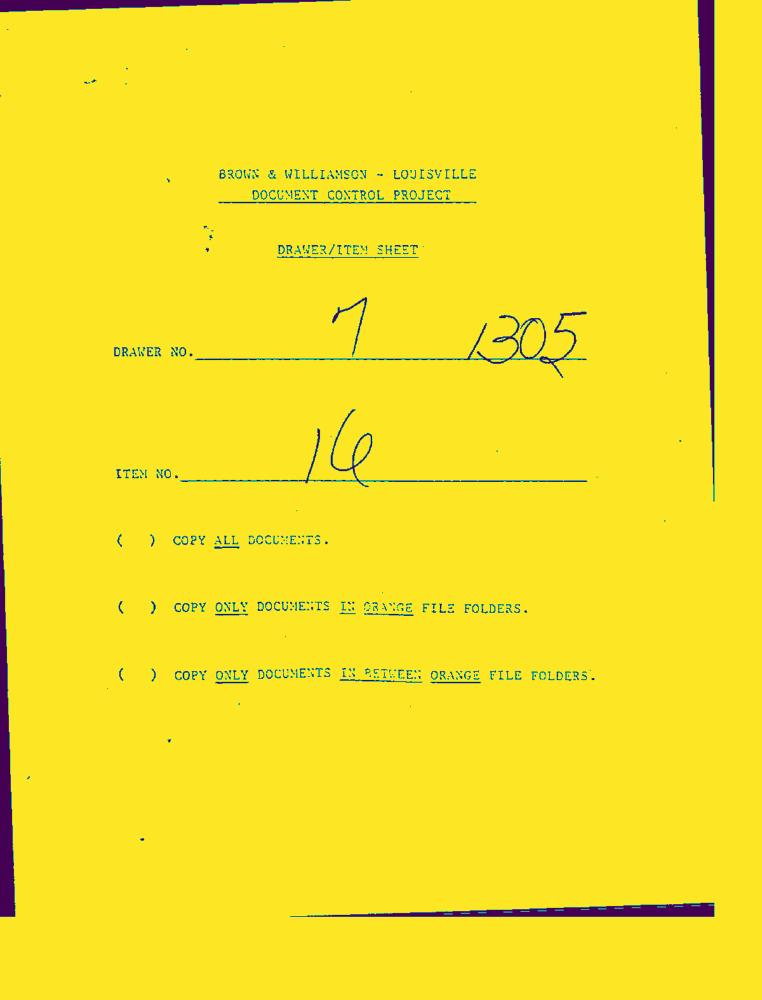 BROWN & WILLIAMSON - LOUISVILLE
DOCUMENT CONTROL PROJECT
DRAWER/ITEM SHEET
DRAWER NO. 7 1305
ITEM NO. 16
( ) COPY ALL DOCUMENTS.
( ) COPY ONLY DOCUMENTS IN ORANGE FILE FOLDERS.
( ) COPY ONLY DOCUMENTS IN BETWEEN ORANGE FILE FOLDERS.